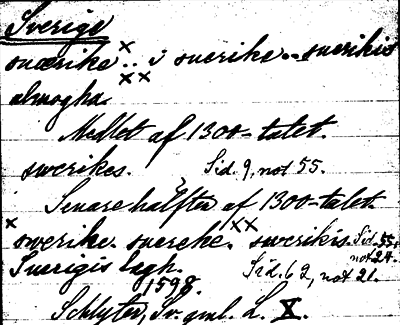 Sverige
suerike x .. i suerike .. suerikis
almogha. xx
Medlet af 1300-talet.
swerikes. Sid. 9, not 55.
Senare hälften af 1300-talet.
x swerike. suereke. xx swerikis. Sid. 55, not 24.
Suerigis lagh. Sid. 62, not 21.
1598.
Schlyter, Sv. gml. L. X.